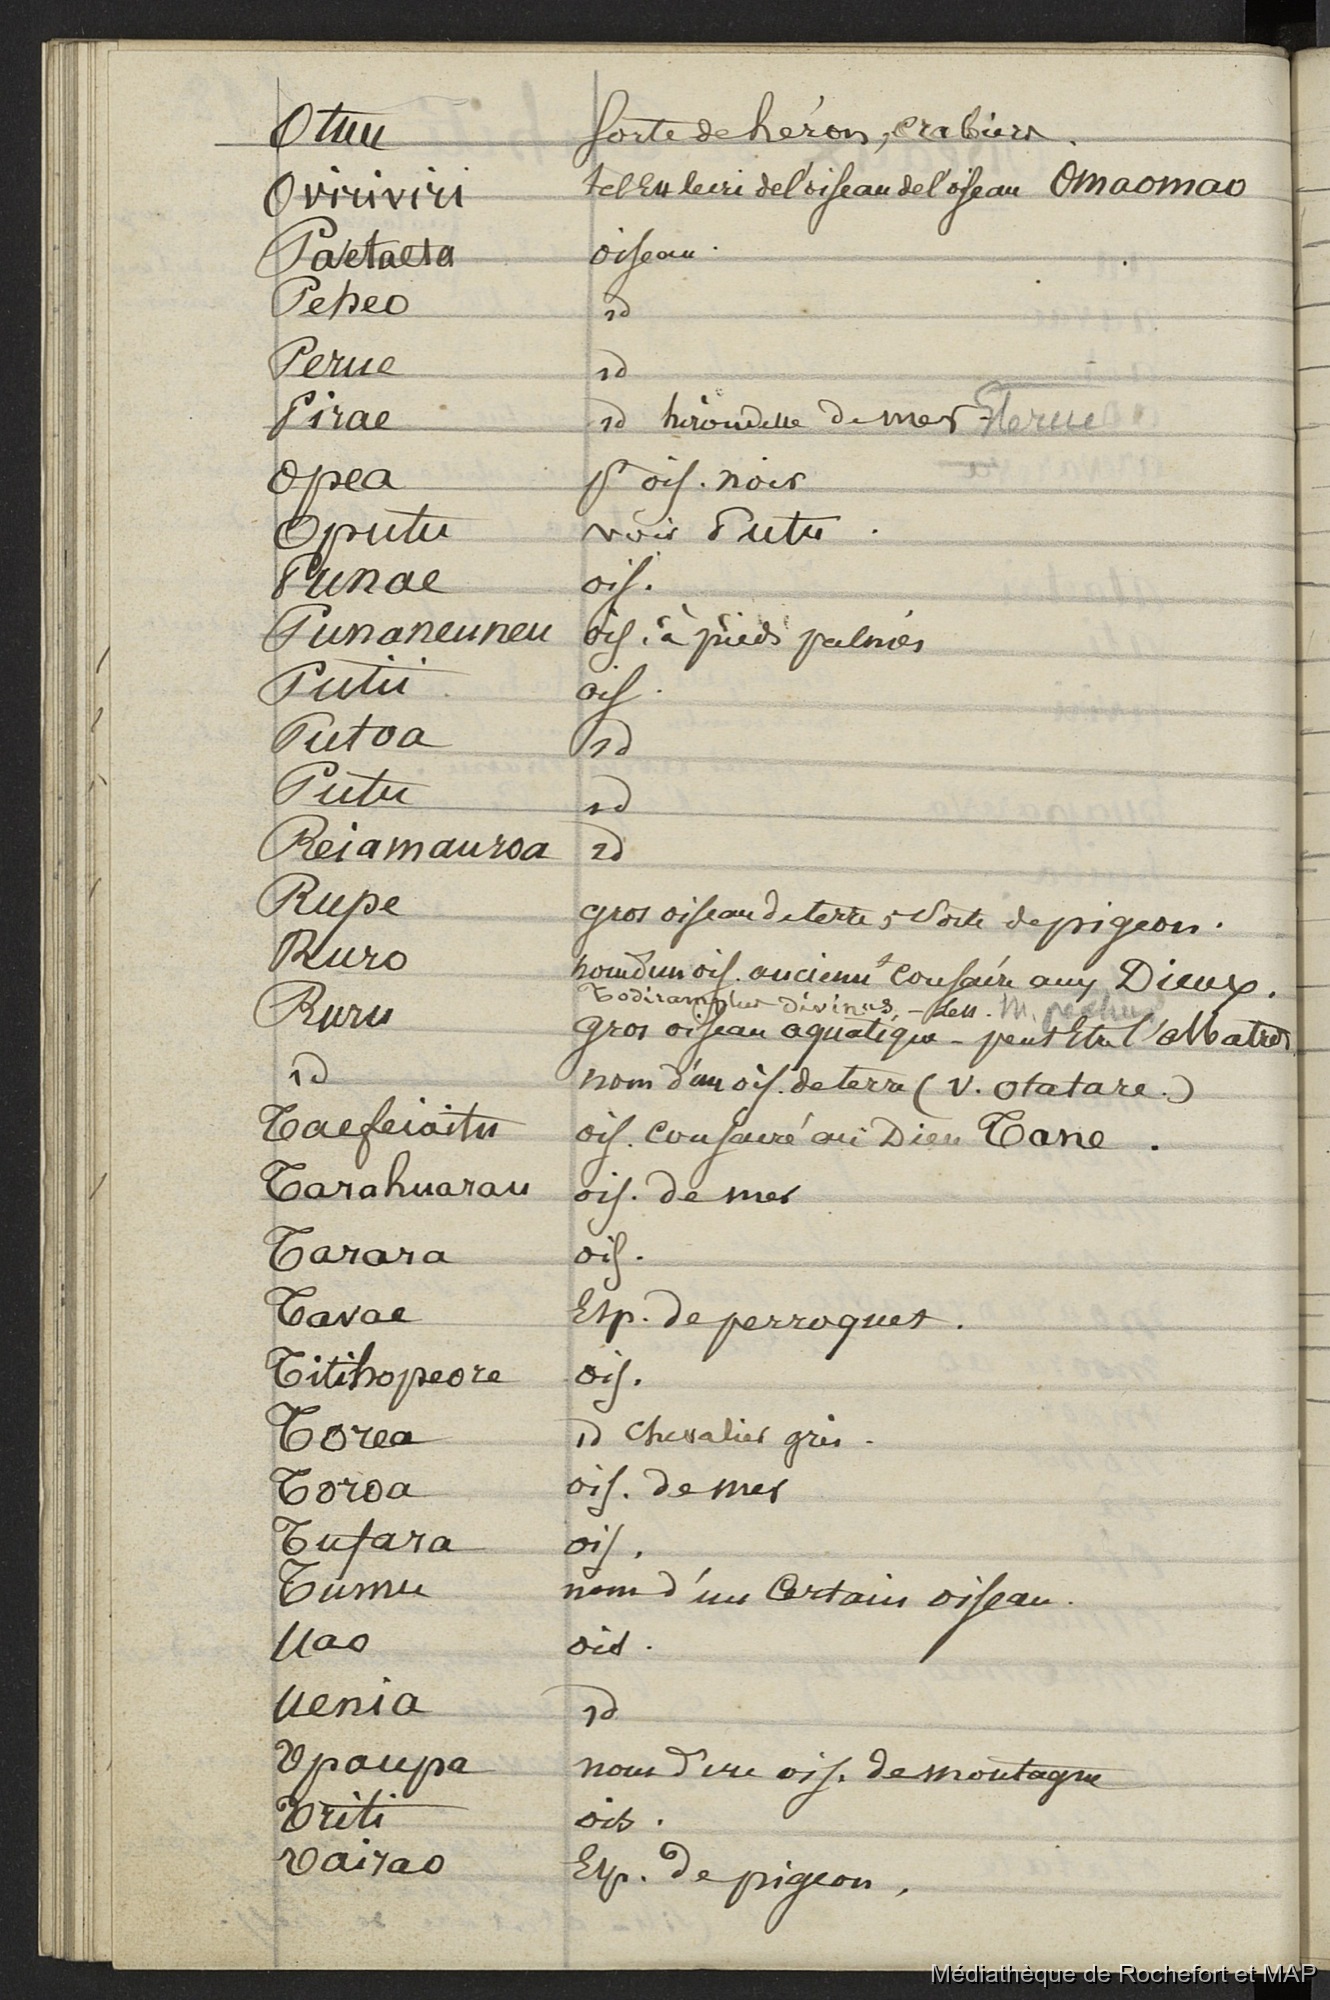 Otuu sorte de héron, crabiers
Oviriviri tel est le cri de l'oiseau de l'oiseau Omaomao
Paetaeta oiseau.
Pepeo id
Perue id
Pirae id hirondelle de mer Sterne
Opea pt ois. noir
Oputu voir Putu.
Punae ois.
Punaneuneu ois. à pieds palmés
Putii ois.
Putoa id
Putu id
Reiamauroa id
Rupe gros oiseau de terre, sorte de pigeon.
Ruro nom d'un ois. anciennt consacré aux Dieux.
Todiramphus divinus, - Less.
Ruru gros oiseau aquatique - peut être l'albatros
id nom d'un ois. de terre (v. otatare.)
Taefeiaitu ois. consacré au Dieu Tane.
Tarahuarau ois. de mer
Tarara ois.
Tavae Esp. de perroquet.
Titihopeore ois.
Torea id chevalier gris.
Toroa ois. de mer
Tufara ois.
Tumu nom d'un certain oiseau.
Uao ois.
Uenia id
Upaupa nom d'un ois. de montagne
Uriti ois.
Vairao Esp. de pigeon.
Médiathèque de Rochefort et MAP